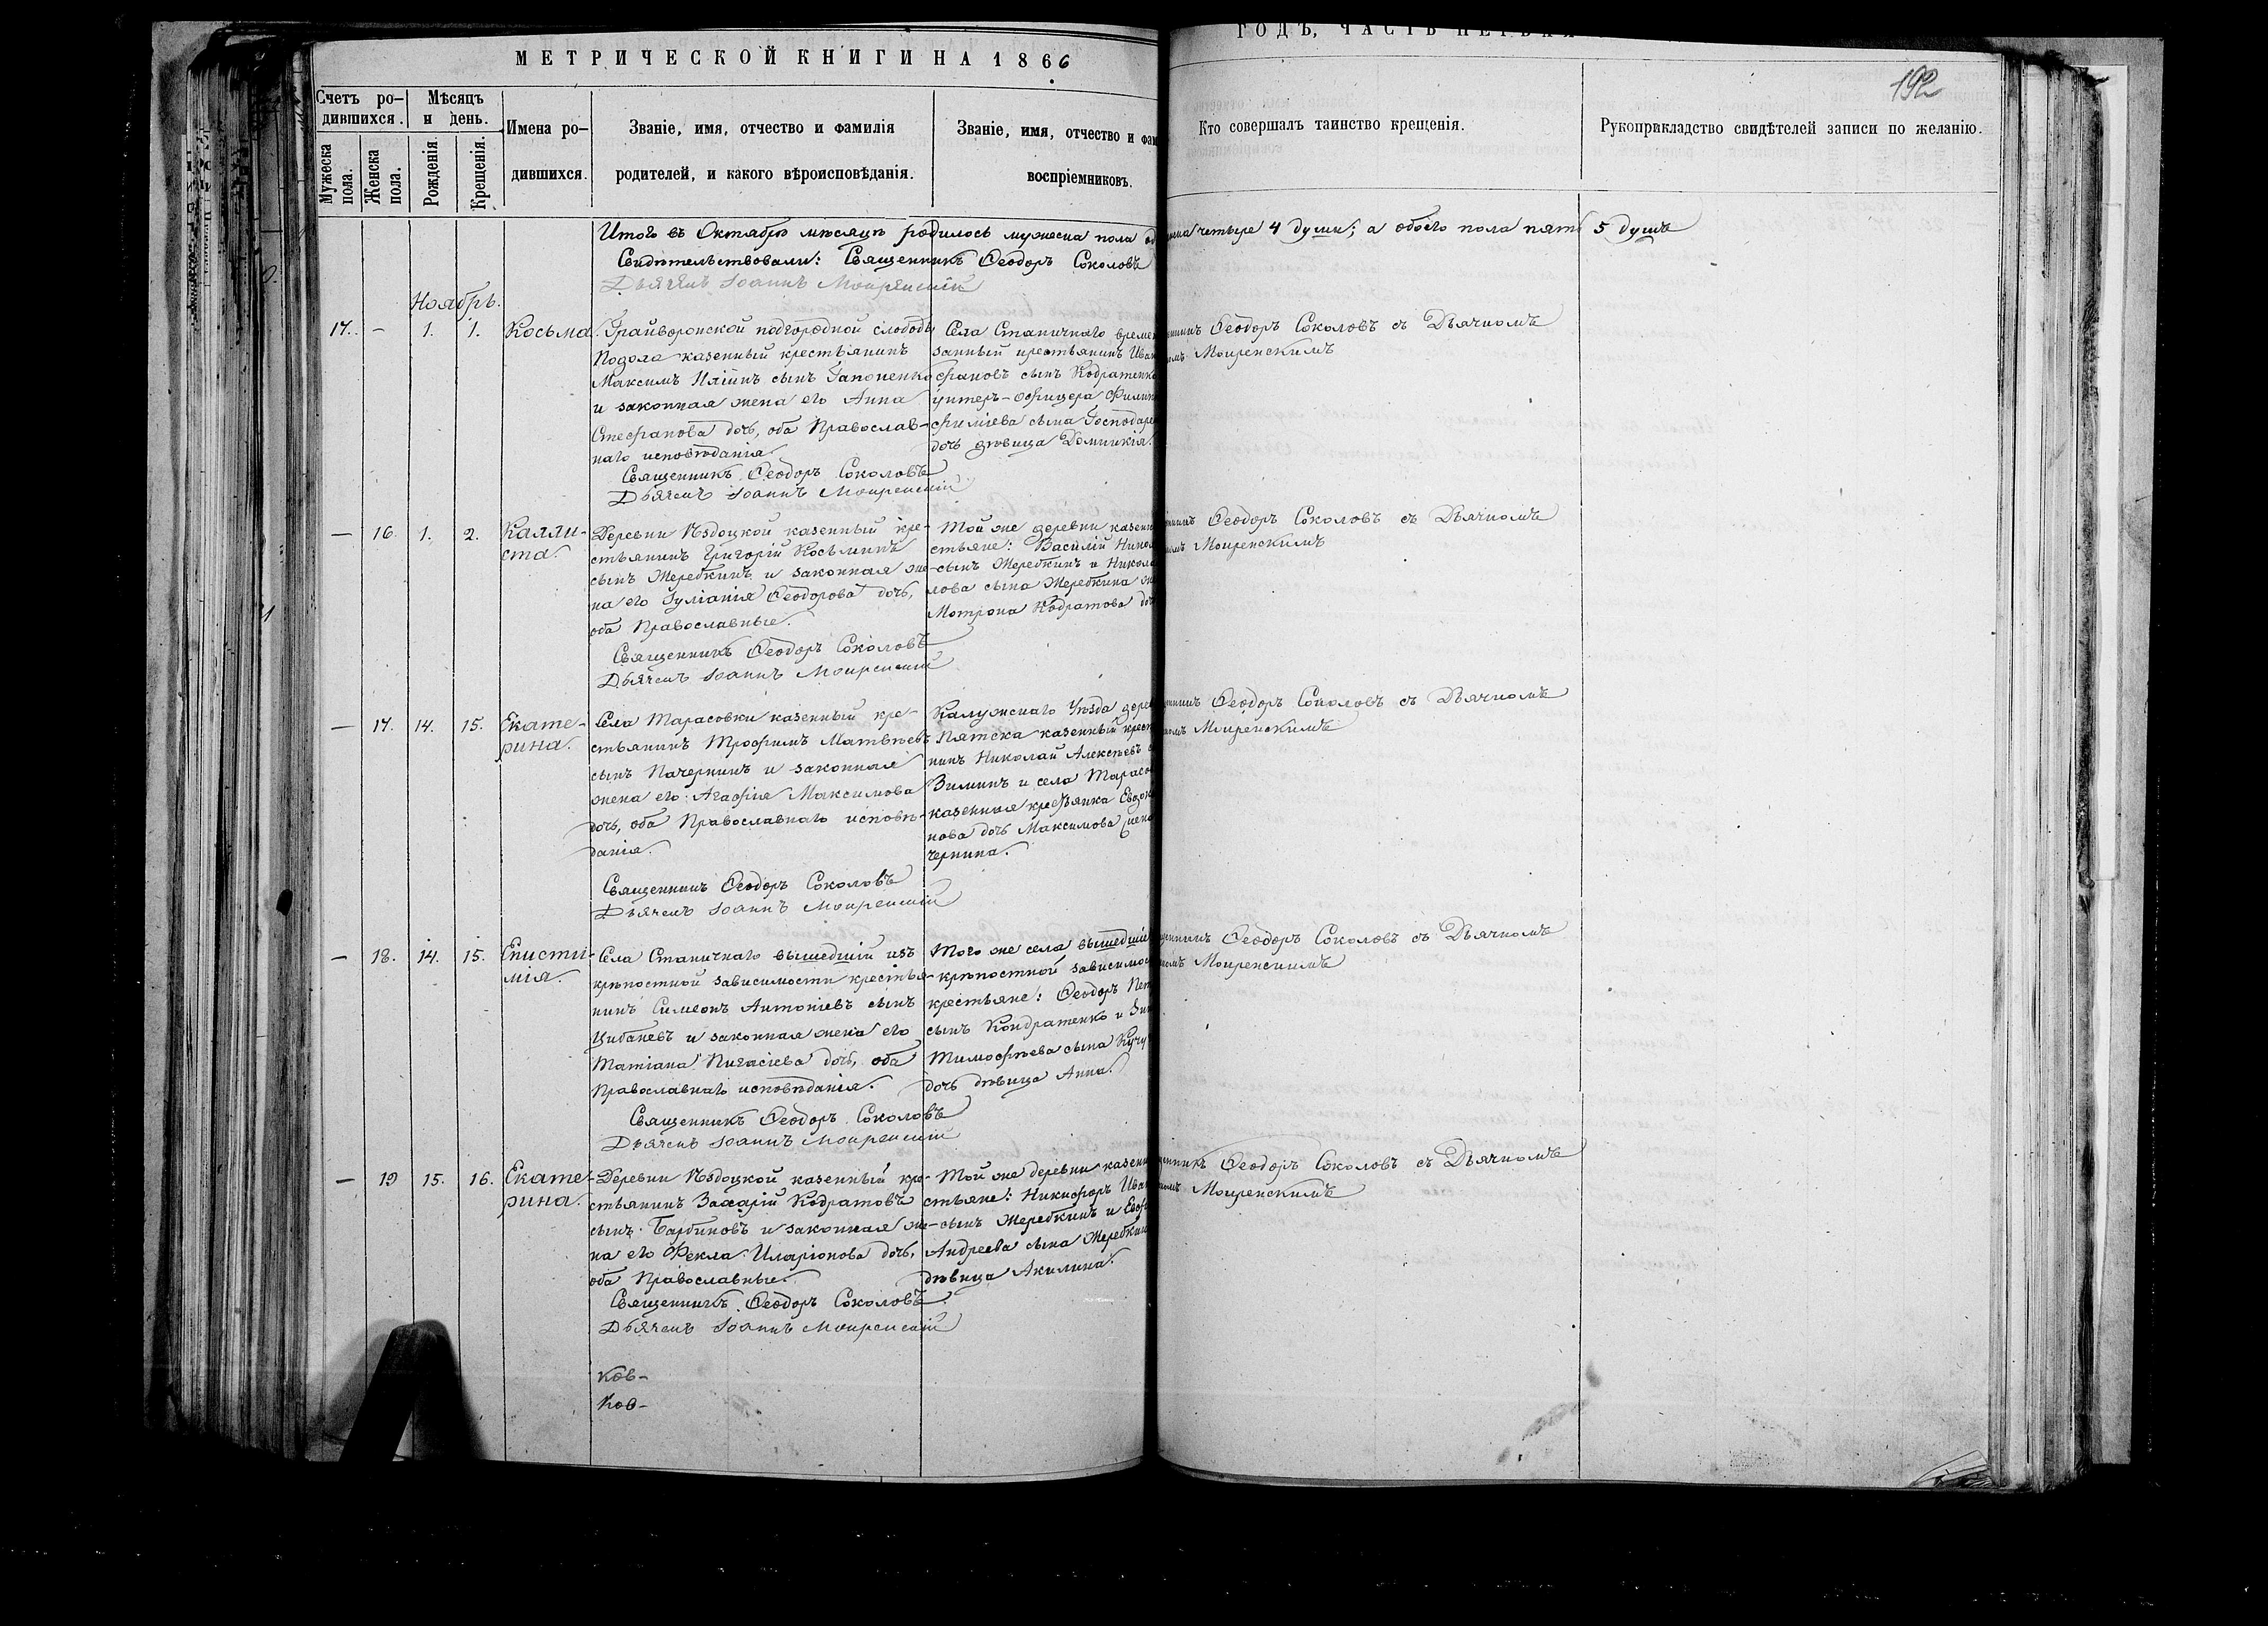 МЕТРИЧЕСКОЙ КНИГИ НА 1866
ГОДЪ, ЧАСТЬ ПЕРВАЯ
192
Счетъ ро-
дившихся.
Мужеска пола.
Женска пола.
Мѣсяцъ
и день.
Рожденія.
Крещенія.
Имена ро-
дившихся.
Званіе, имя, отчество и фамилія
родителей, и какого вѣроисповѣданія.
Званіе, имя, отчество и фам
воспріемниковъ.
Кто совершалъ таинство крещенія.
Рукоприкладство свидѣтелей записи по желанію.
Итого въ Октябрѣ мѣсяцѣ родилось мужеска пола од
четыре 4 души; а обоего пола пять 5 душъ
Свидѣтельствовали: Священникъ Ѳеодоръ Соколовъ
Дьячекъ Іоаннъ Мокренскій
Ноябрь.
17. – 1. 1. Косьма.
Грайворонской подгородной слободы
Подола казенный крестьянинъ
Максимъ Иліинъ сынъ Гапоненко
и законная жена его Анна
Стефанова дочь, оба Православ-
наго исповѣданія
Священникъ Ѳеодоръ Соколовъ
Дьячекъ Іоаннъ Мокренскій
Села Станичнаго време
занный крестьянинъ Иван
фановъ сынъ Кодратенко
унтеръ-офицера Филип
филіева сына Господаре
дочь дѣвица Домникія.
Ѳеодоръ Соколовъ съ Дьячкомъ
Мокренскимъ
– 16. 1. 2. Калли-
ста.
Деревни Ѣздоцкой казенный кре-
стьянинъ Григорій Косьминъ
сынъ Жеребкинъ и законная же-
на его Іуліанія Ѳеодорова дочь,
оба Православные.
Священникъ Ѳеодоръ Соколовъ
Дьячекъ Іоаннъ Мокренскій
Той же деревни казенн
стьяне: Василій Никол
сынъ Жеребкинъ и Никола
лова сына Жеребкина ж
Мотрона Кодратова доч
Ѳеодоръ Соколовъ съ Дьячкомъ
Мокренскимъ
– 17. 14. 15. Екате-
рина.
Села Тарасовки казенный кре-
стьянинъ Трофимъ Матвѣевъ
сынъ Пачернинъ и законная
жена его: Агафія Максимова
дочь, оба Православнаго исповѣ-
данія.
Священникъ Ѳеодоръ Соколовъ
Дьячекъ Іоаннъ Мокренскій
Калужскаго Уѣзда дерев
Пятска казенный крест
нинъ Николай Алексѣевъ с
Зиминъ и села Тарасо
казенная крестьянка Евдок
нова дочь Максимова
чернина.
Ѳеодоръ Соколовъ съ Дьячкомъ
Мокренскимъ
– 18. 14. 15. Еписти-
мія.
Села Станичнаго вышедшій изъ
крѣпостной зависимости крестья-
нинъ Симеонъ Антоніевъ сынъ
Цибаневъ и законная жена его
Татіана Пигасіева дочь, оба
Православнаго исповѣданія.
Священникъ Ѳеодоръ Соколовъ
Дьячекъ Іоаннъ Мокренскій
Того же села вышедшіе
крѣпостной зависимос
крестьяне: Ѳеодоръ Пет
сынъ Кондратенко и
Тимофѣева сына
дочь дѣвица Анна.
Ѳеодоръ Соколовъ съ Дьячкомъ
Мокренскимъ
– 19 15. 16. Екате-
рина.
Деревни Ѣздоцкой казенный кре-
стьянинъ Захарій Кодратовъ
сынъ Барбиновъ и законная же-
на его Ѳекла Иларіонова дочь,
оба Православные.
Священникъ Ѳеодоръ Соколовъ
Дьячекъ Іоаннъ Мокренскій
Той же деревни казенн
стьяне: Никифоръ Иван
сынъ Жеребкинъ и Евф
Андреева сына Жеребкин
дѣвица Акилина.
Ѳеодоръ Соколовъ съ Дьячкомъ
Мокренскимъ
ков-
ков-